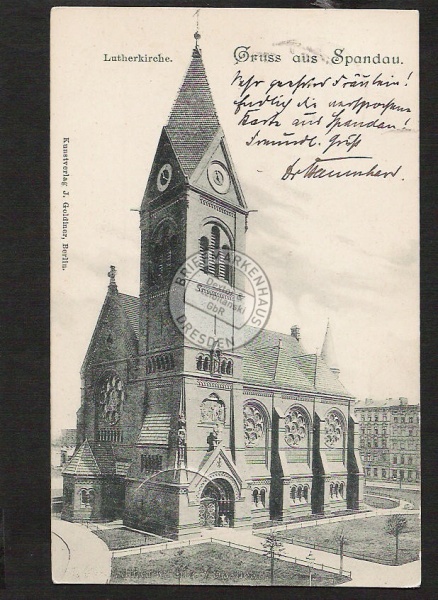 Lutherkirche.
Gruss aus Spandau.
Sehr geehrtes Fräulein!
Endlich die versprochene
Karte aus Spandau!
Freundl. Gruß
Kunstverlag J. Goldiner, Berlin.
BRIEFMARKENHAUS
GbR
DRESDEN